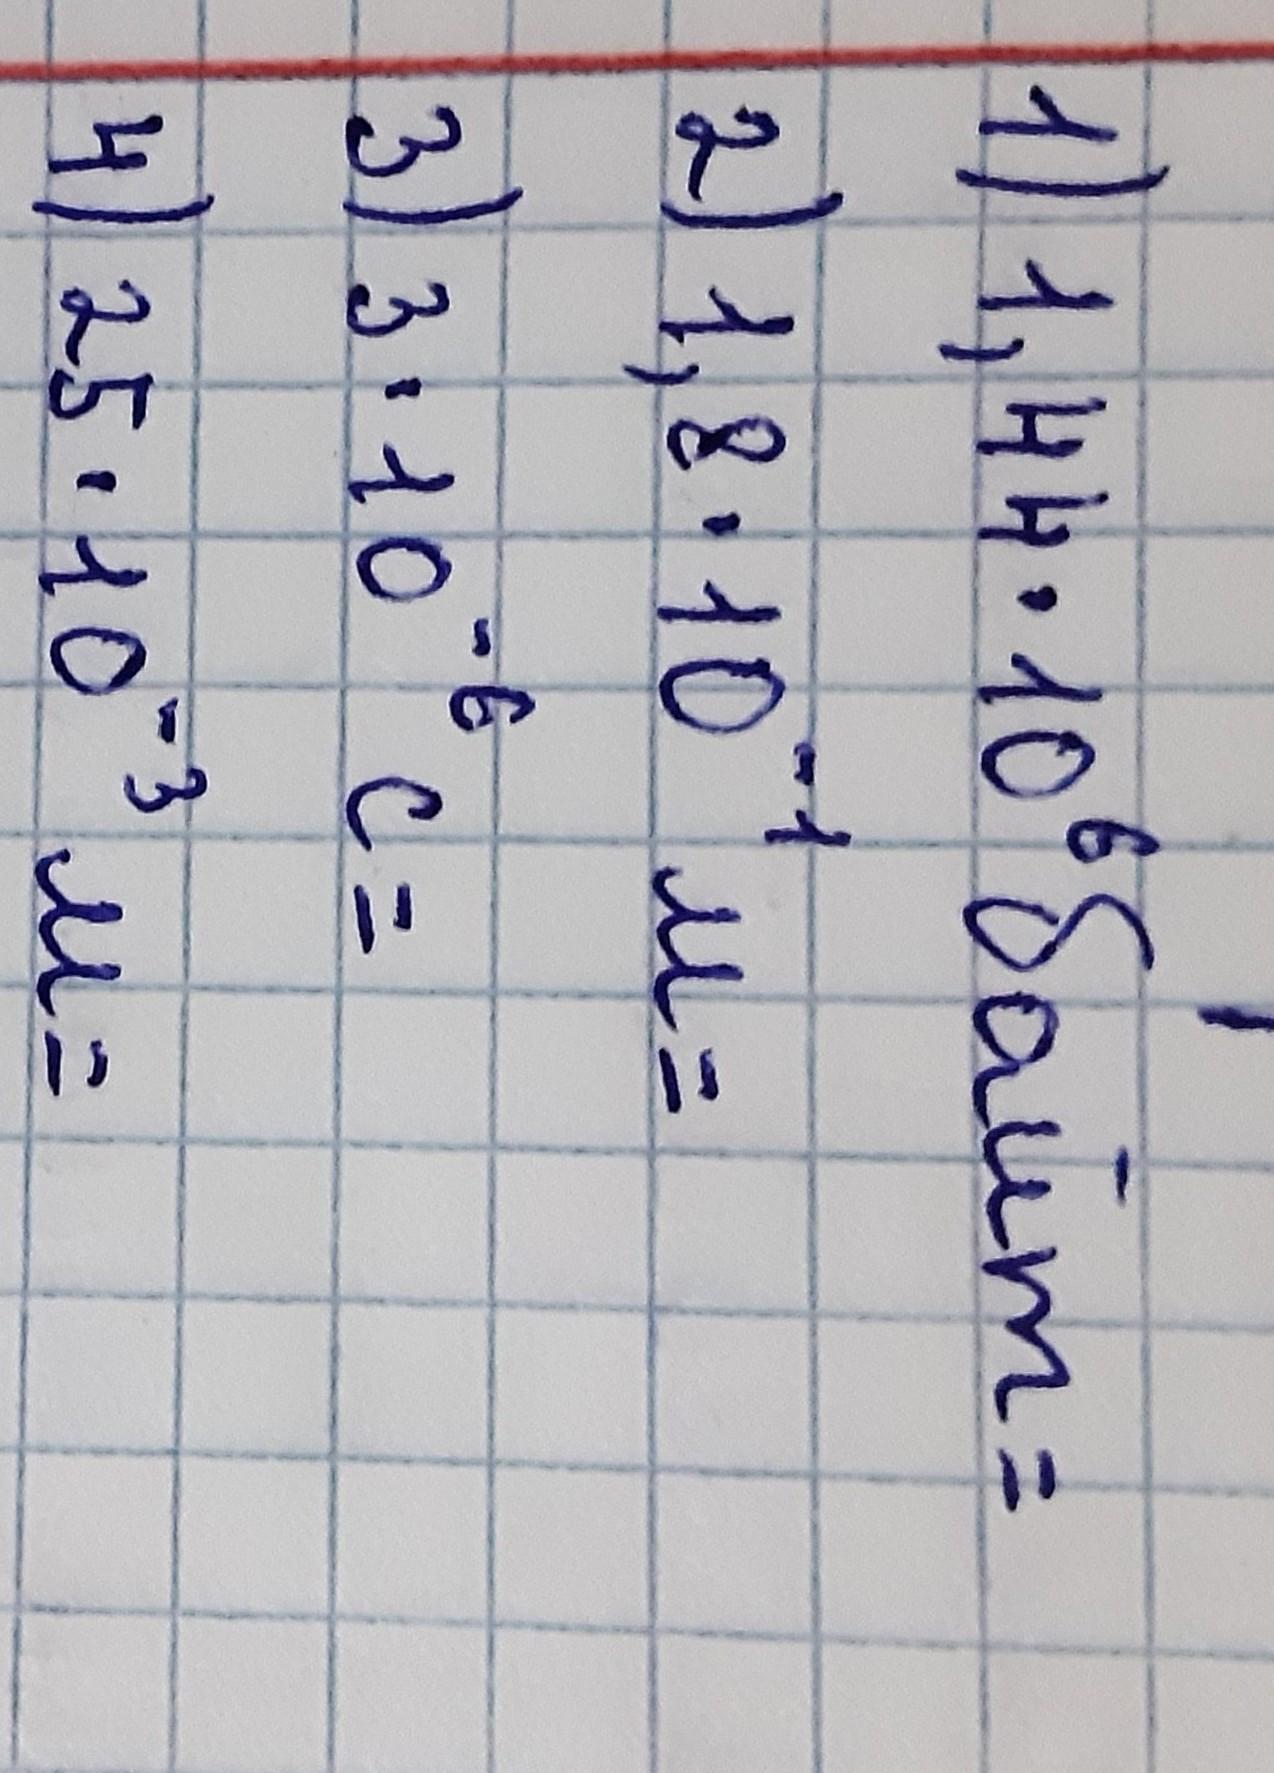 1) 1,44·10⁶ байт=
2) 1,8·10⁻¹ м=
3) 3·10⁻⁶ с=
4) 25·10⁻³ м=